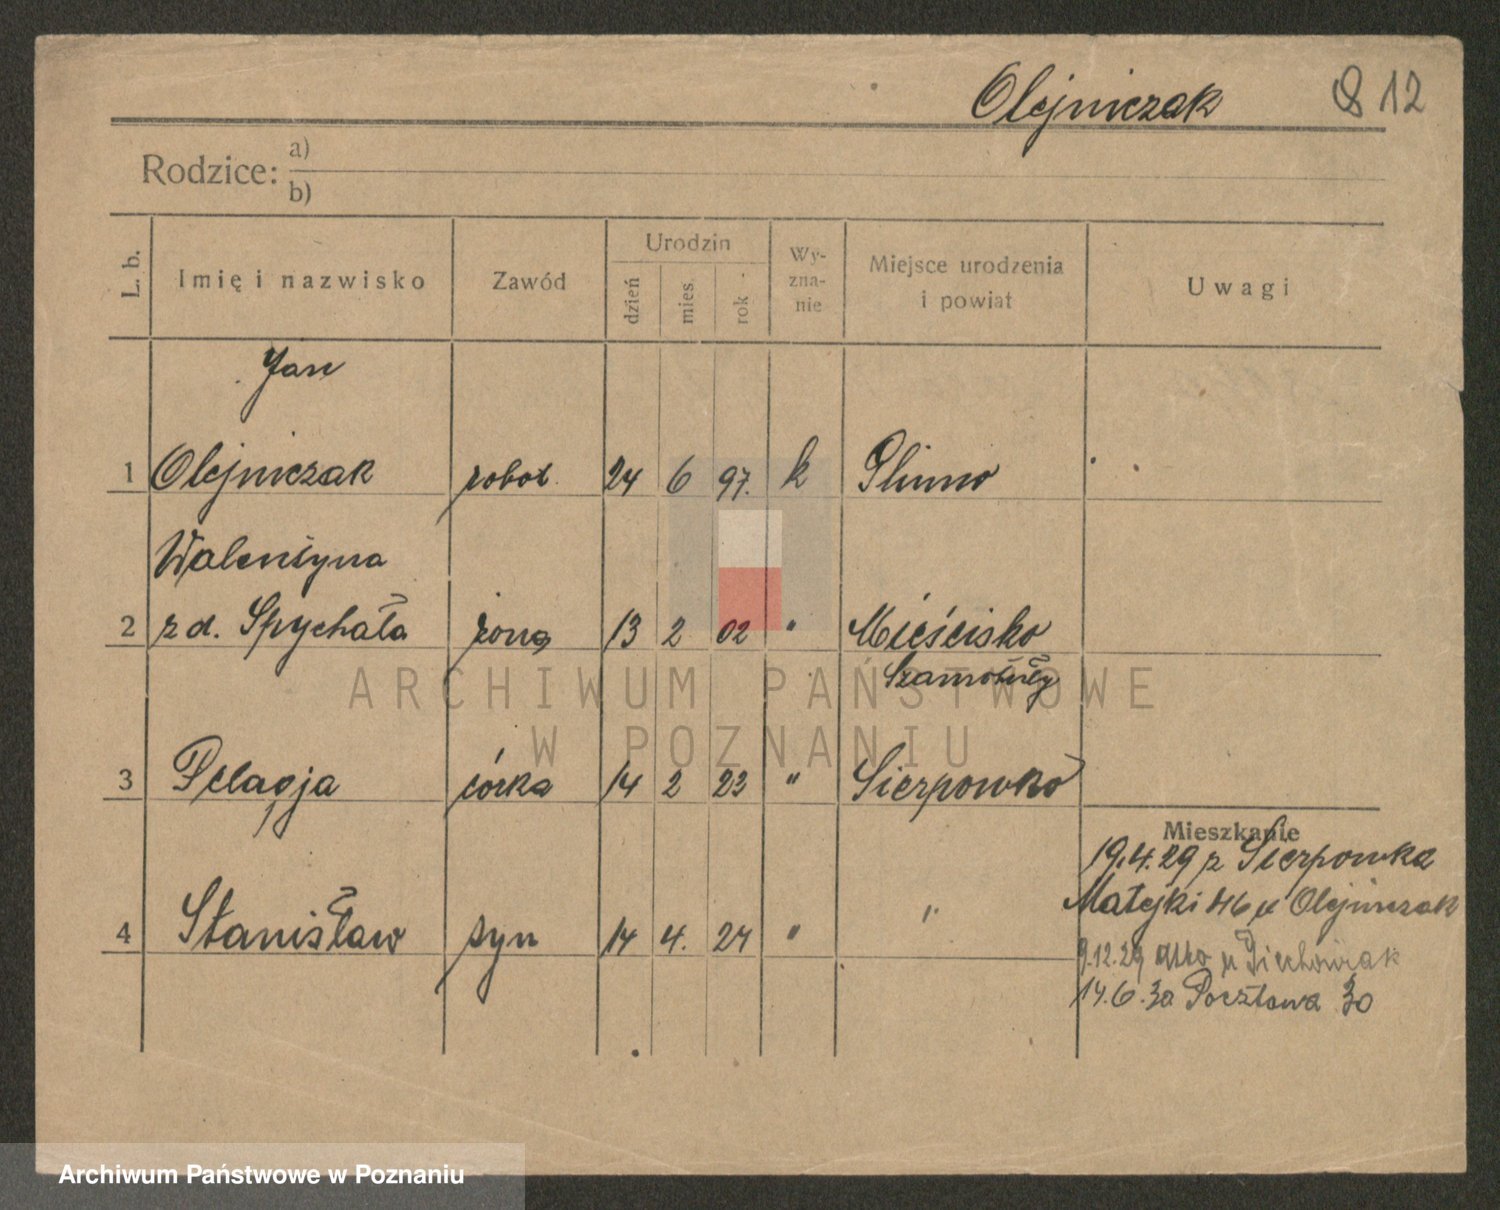 Olejniczak 812
Rodzice: a)
b)
L. b. Imię i nazwisko Zawód Urodzin dzień mies. rok Wyznanie Miejsce urodzenia i powiat Uwagi
Jan
1 Olejniczak robot. 24 6 97. k
Walentyna
2 z d. Spychała żona 13 2 02 " Mieścisko
Szamotuły
3 Pelagja córka 14 2 23 " Sierpowko
Mieszkanie
19.4.29 z Sierpowka
Matejki 46 u Olejniczak
4 Stanisław syn 14 4. 24 " "
9.12.29 u Piechowiak
14.6.30 Pocztowa 30
ARCHIWUM PAŃSTWOWE
W POZNANIU
Archiwum Państwowe w Poznaniu